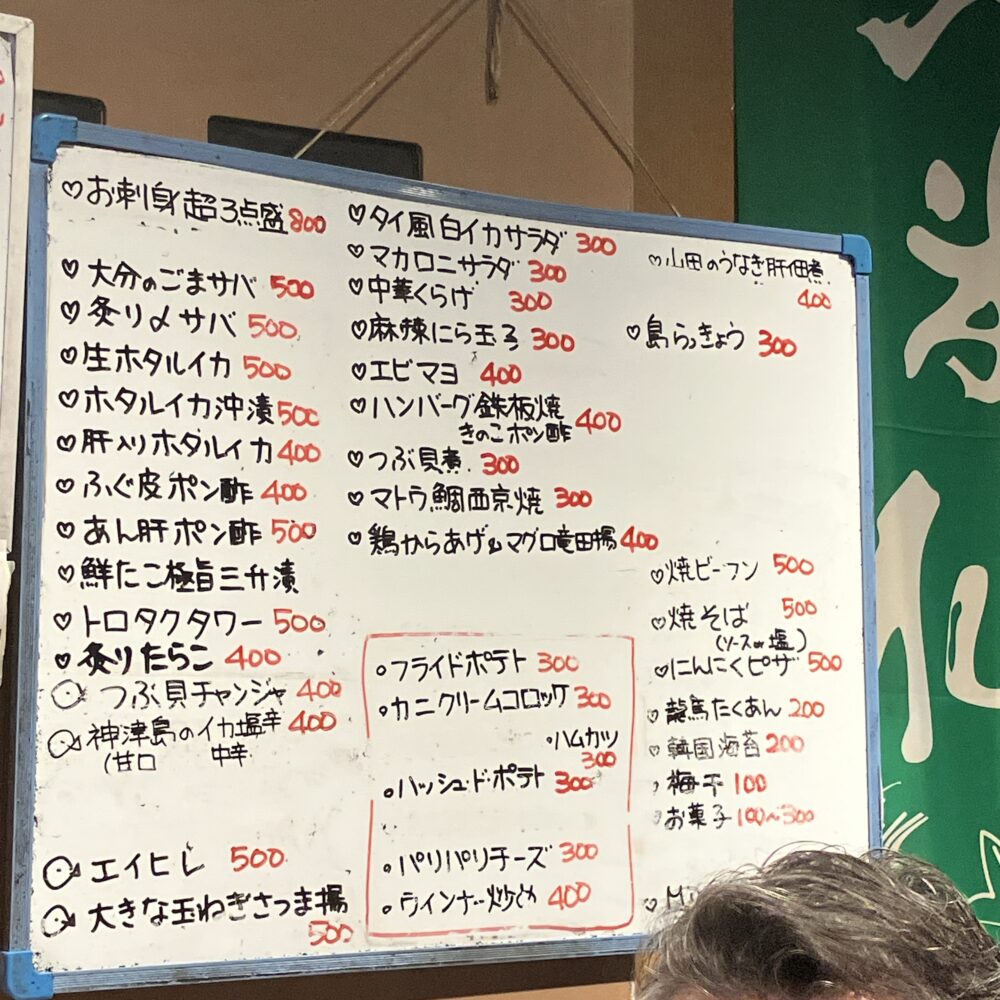 ♡お刺身超3点盛800
♡大分のごまサバ 500
♡炙り〆サバ 500
♡生ホタルイカ 500
♡ホタルイカ沖漬500
♡肝入りホタルイカ400
♡ふぐ皮ポン酢 400
♡あん肝ポン酢 500
♡鮮たこ極旨三升漬
♡トロタクタワー 500
♡炙りたらこ 400
つぶ貝チャンジャ 400
神津島のイカ塩辛 400
(甘口 中辛
エイヒレ 500
大きな玉ねぎさつま揚
500
♡タイ風白イカサラダ 300
♡マカロニサラダ 300
♡中華くらげ 300
♡麻辣にら玉子 300
♡エビマヨ 400
♡ハンバーグ鉄板焼
きのこポン酢 400
♡つぶ貝煮 300
♡マトウ鯛西京焼 300
♡鶏からあげ&マグロ竜田揚400
○フライドポテト 300
○カニクリームコロッケ300
・ハムカツ
300
○ハッシュドポテト 300
○パリパリチーズ 300
○ウインナー炒め 400
♡山田のうなぎ肝佃煮
400
♡島らっきょう 300
♡焼ビーフン 500
♡焼そば 500
(ソースor塩)
♡にんにくピザ 500
♡龍馬たくあん 200
♡韓国海苔 200
♡梅干 100
♡お菓子 100~300